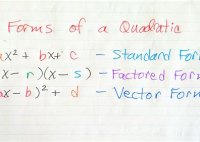 Forms of a Quadratic
ax² + bx + c – Standard For
x – r)(x – s) – Factored For
ax – b)² + d – Vector Form